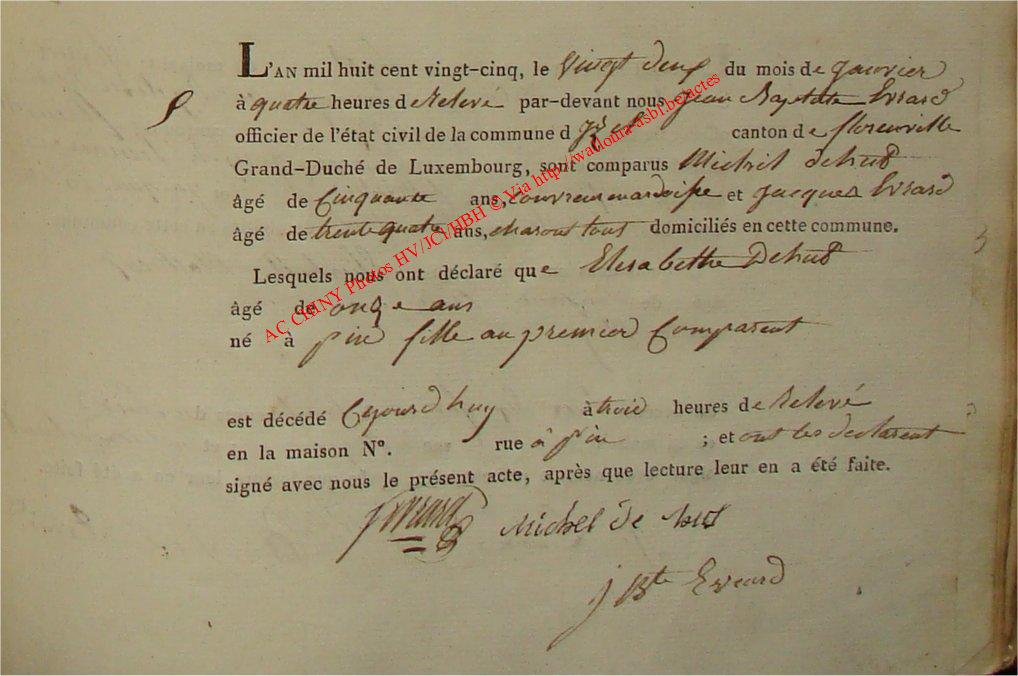 L'AN mil huit cent vingt-cinq, le Vingt deux du mois de janvier
à quatre heures de Relevé par-devant nous Jean Baptiste Evrard
officier de l'état civil de la commune d canton de florenville
Grand-Duché de Luxembourg, sont comparus Michel dehut
âgé de Cinquante ans, et Jacques Evrard
âgé de trente quatre ans, domiciliés en cette commune.
Lesquels nous ont déclaré que Elisabethe Dehut
âgé de onze ans
né à pin fille au premier Comparent
est décédé Cejourdhuy à trois heures de Relevé
en la maison N°. rue à pin ; et ont les declarent
signé avec nous le présent acte, après que lecture leur en a été faite.
Michel de hut
j Bte Evrard
AC CHINY Photos HV/JCI/HBH © Via http://wallonia-asbl.be/actes